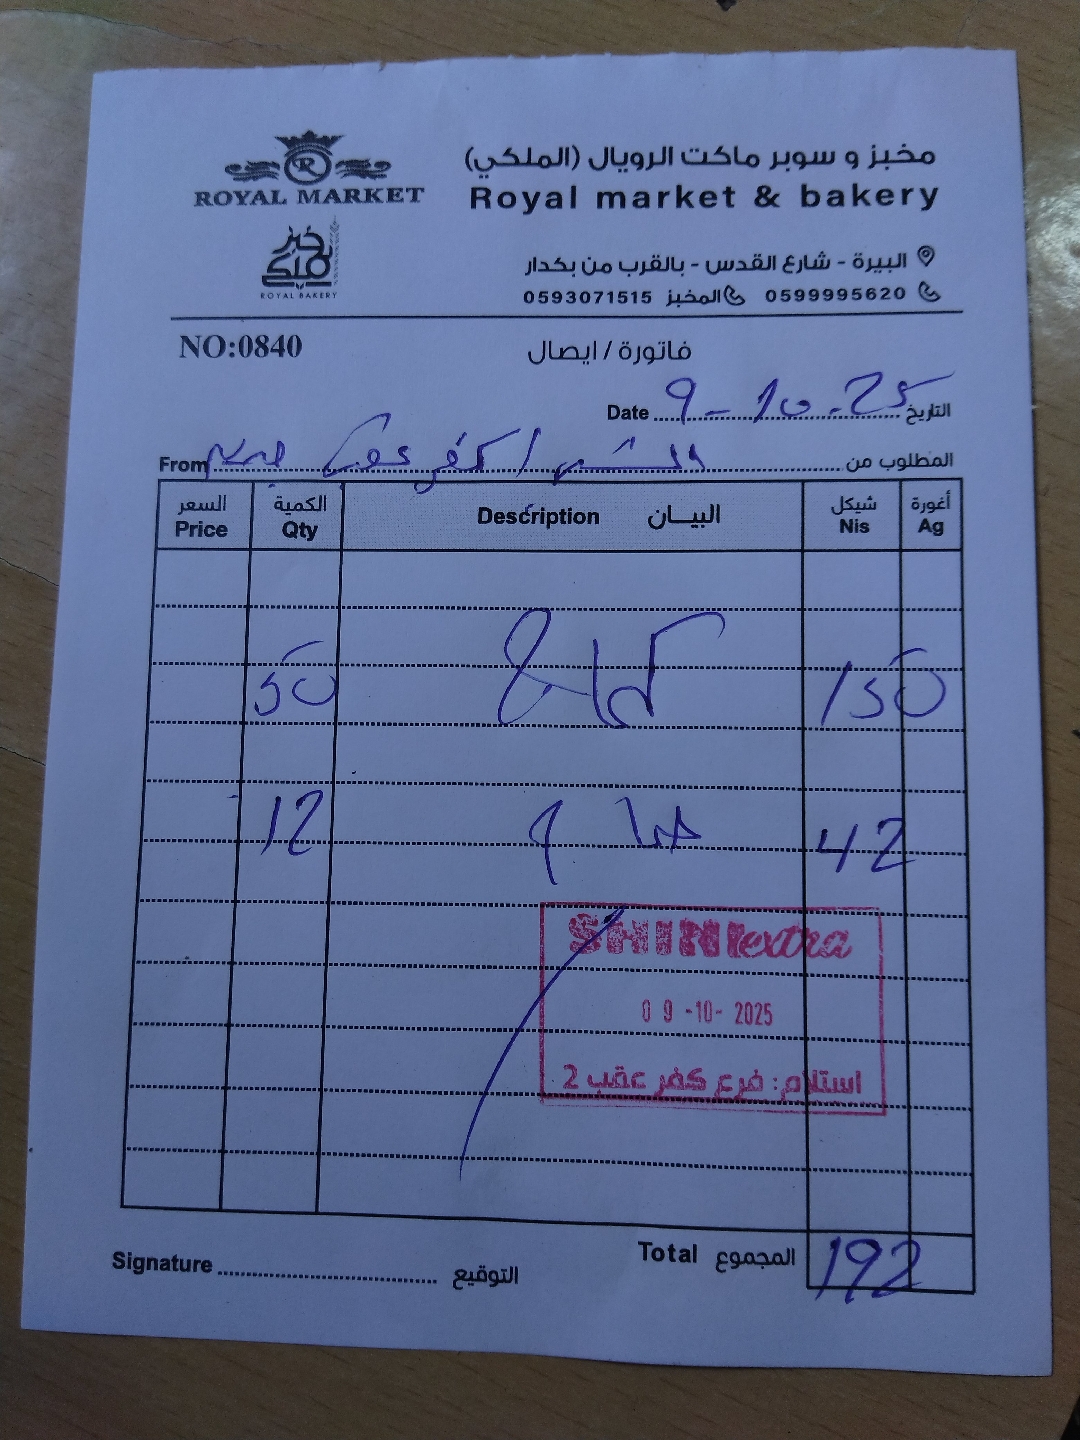 ROYAL MARKET
خبز ملكي
ROYAL BAKERY
مخبز و سوبر ماكت الرويال (الملكي)
Royal market & bakery
البيرة - شارع القدس - بالقرب من بكدار
0599995620 المخبز 0593071515
NO:0840
فاتورة / ايصال
Date 9-10-25 التاريخ
From الشني / كفر عقب المطلوب من
السعر الكمية البيان شيكل أغورة
Price Qty Description Nis Ag
50 كماج 150
12 42
SHINI extra
09-10-2025
استلام: فرع كفر عقب 2
Total المجموع 192
Signature التوقيع